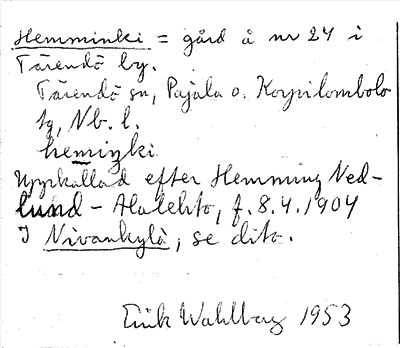 Hemminki = gård å nr 24 i
Tärendö by.
Tärendö sn, Pajala o. Korpilombolo
tg, Nb. l.
hemiŋki
Uppkallad efter Hemming Ned-
lund - Alalehto, f. 8.4.1904
I Nivankylä, se dito.
Erik Wahlberg 1953